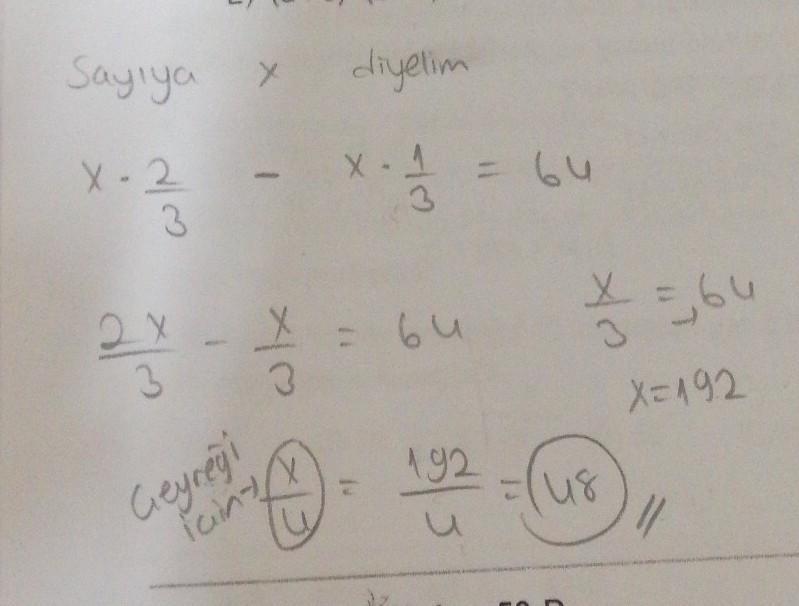 Sayıya x diyelim
x · 2/3 - x · 1/3 = 64
2x/3 - x/3 = 64
x/3 = 64
x=192
Çeyreği için → x/4 = 192/4 = 48 //